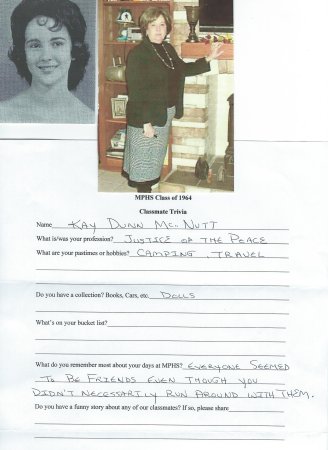 MPHS Class of 1964
Classmate Trivia
Name KAY DUNN MC. NUTT
What is/was your profession? JUSTICE OF THE PEACE
What are your pastimes or hobbies? CAMPING, TRAVEL
Do you have a collection? Books, Cars, etc. DOLLS
What's on your bucket list?
What do you remember most about your days at MPHS? EVERYONE SEEMED
TO BE FRIENDS EVEN THOUGH YOU
DIDN'T NECESSARILY RUN AROUND WITH THEM.
Do you have a funny story about any of our classmates? If so, please share